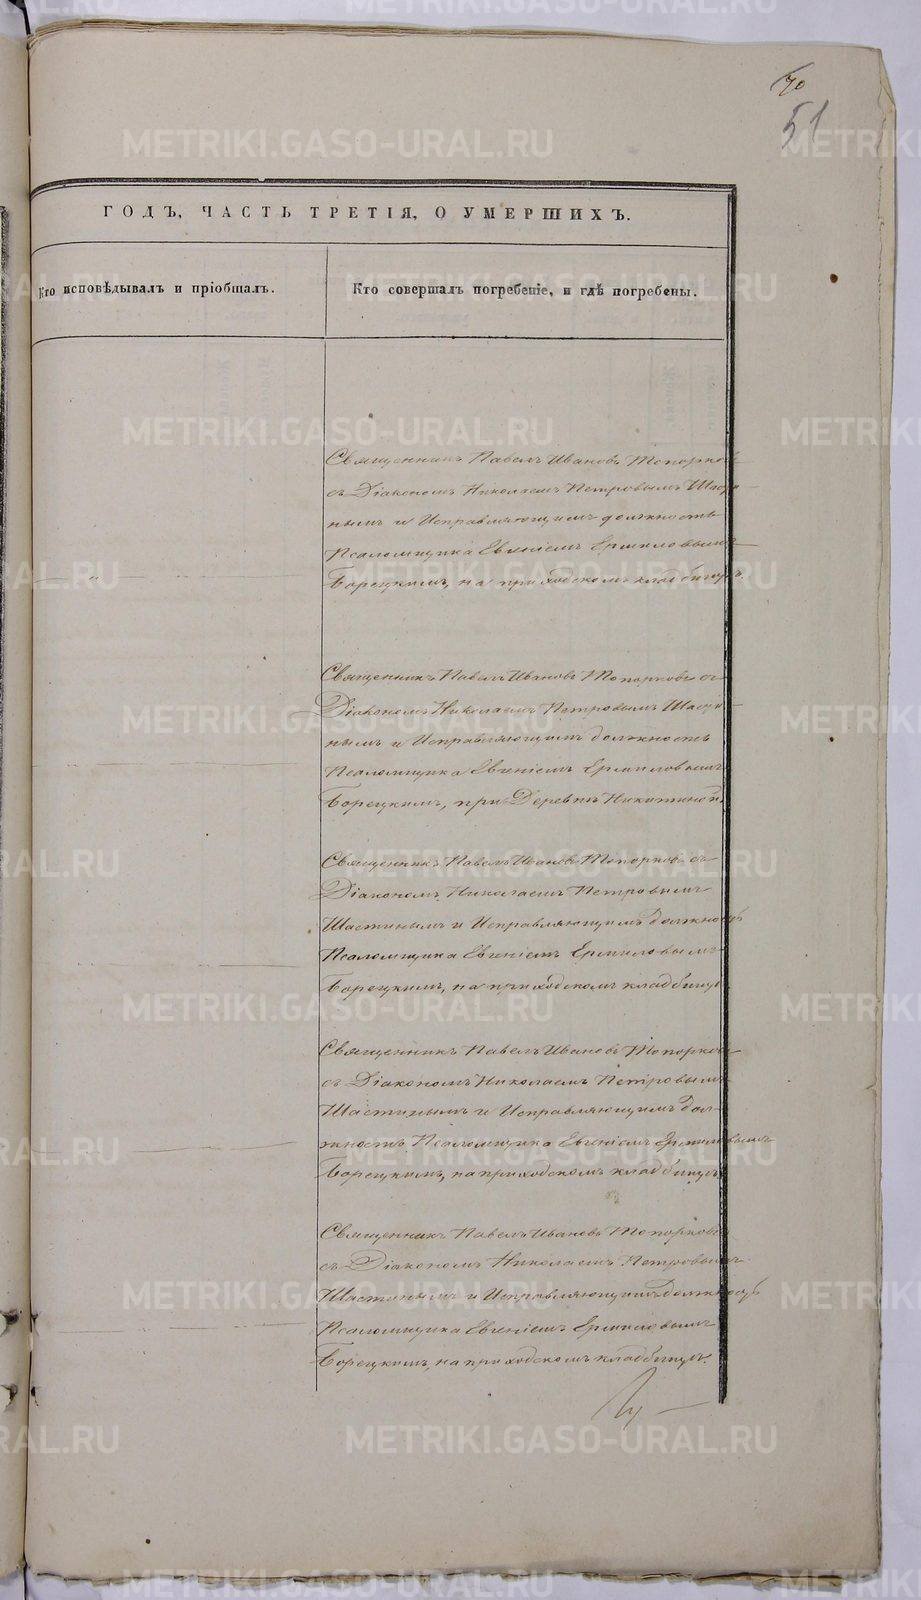 70
51
ГОДЪ, ЧАСТЬ ТРЕТІЯ, О УМЕРШИХЪ.
Кто исповѣдывалъ и пріобщалъ.
Кто совершалъ погребеніе, и гдѣ погребены.
Священникъ Павелъ Ивановъ Топорковъ
съ Діакономъ Николаемъ Петровымъ Шасти-
нымъ и Исправляющимъ должность
Псаломщика Евгеніемъ Ермиловымъ
Борецкимъ, на приходскомъ кладбищѣ.
Священникъ Павелъ Ивановъ Топорковъ съ
Діакономъ Николаемъ Петровымъ Шасти-
нымъ и Исправляющимъ должность
Псаломщика Евгеніемъ Ермиловымъ
Борецкимъ, при Деревнѣ Никитиной.
Священникъ Павелъ Ивановъ Топорковъ съ
Діакономъ Николаемъ Петровымъ
Шастинымъ и Исправляющимъ должность
Псаломщика Евгеніемъ Ермиловымъ
Борецкимъ, на приходскомъ кладбищѣ.
Священникъ Павелъ Ивановъ Топорковъ
съ Діакономъ Николаемъ Петровымъ
Шастинымъ и Исправляющимъ дол-
жность Псаломщика Евгеніемъ Ермиловымъ
Борецкимъ, на приходскомъ кладбищѣ.
Священникъ Павелъ Ивановъ Топорковъ
съ Діакономъ Николаемъ Петровымъ
Шастинымъ и Исправляющимъ должность
Псаломщика Евгеніемъ Ермиловымъ
Борецкимъ, на приходскомъ кладбищѣ.
METRIKI.GASO-URAL.RU